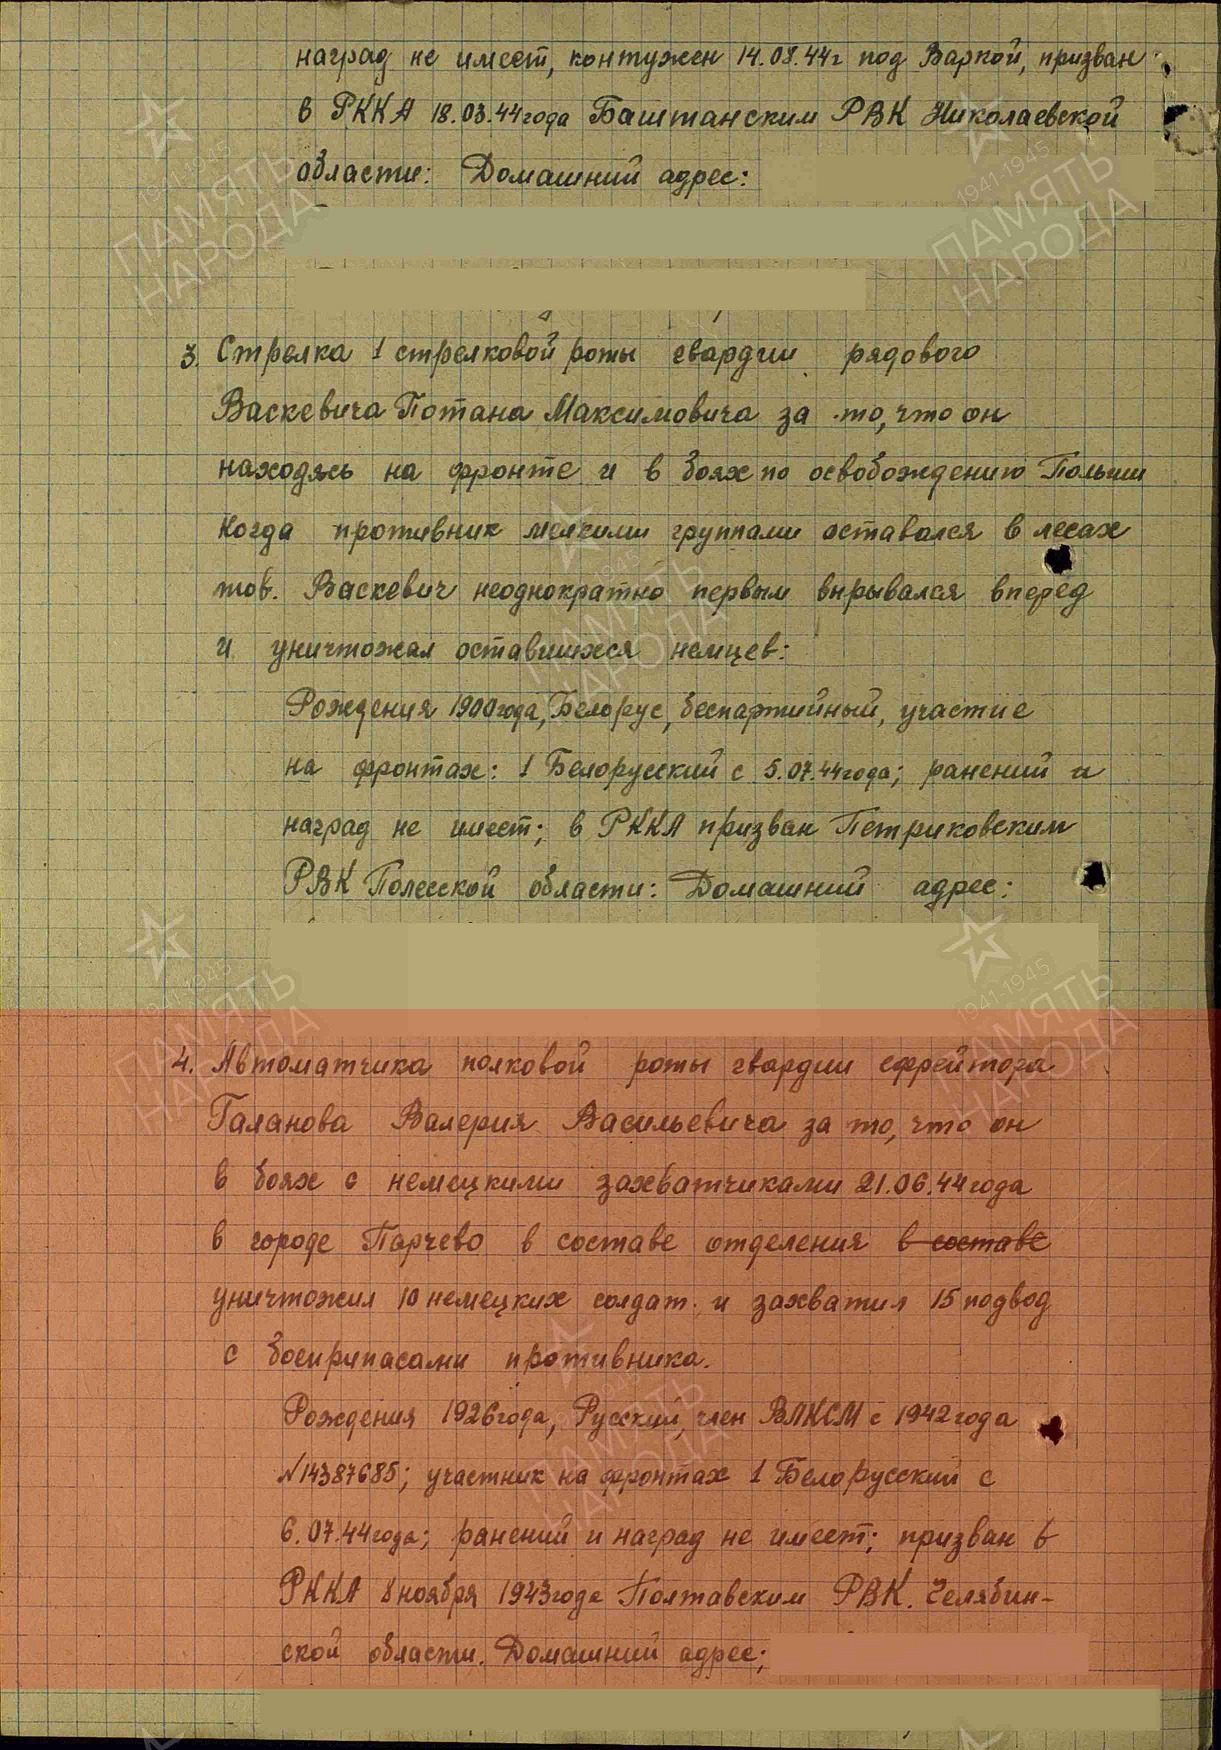 наград не имеет, контужен 14.08.44г под Варкой, призван
в РККА 18.03.44года Баштанским РВК Николаевской
области: Домашний адрес:
3. Стрелка 1 стрелковой роты гвардии рядового
Васкевича Потана Максимовича за то, что он
находясь на фронте и в боях по освобождению Польши
когда противник мелкими группами оставался в лесах
тов. Васкевич неоднократно первым вырывался вперед
и уничтожал оставшихся немцев:
Рождения 1900года, Белорус, беспартийный, участие
на фронтах: 1 Белорусский с 5.07.44года; ранений и
наград не имеет; в РККА призван Петриковским
РВК Полесской области: Домашний адрес:
4. Автоматчика полковой роты гвардии ефрейтора
Галанова Валерия Васильевича за то, что он
в боях с немецкими захватчиками 21.06.44года
в городе Парчево в составе отделения в составе
уничтожил 10 немецких солдат и захватил 15 подвод
с боеприпасами противника.
Рождения 1926года, Русский, член ВЛКСМ с 1942года
№14387685; участник на фронтах 1 Белорусский с
6.07.44года; ранений и наград не имеет; призван в
РККА 8 ноября 1943года Полтавским РВК. Челябин-
ской области. Домашний адрес;
1941-1945
ПАМЯТЬ
НАРОДА